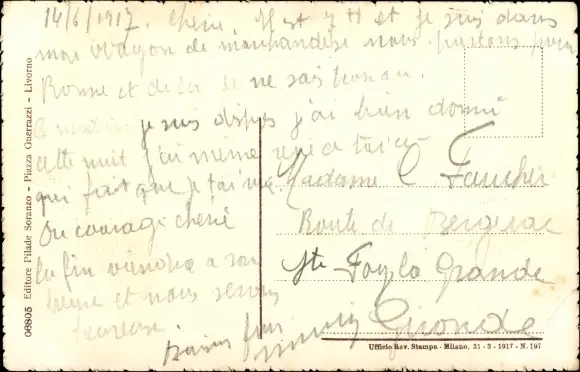 14/6/1917. Cherie, Il est 7 H et je suis dans
mon wagon de marchandise nous partons pour
Rome et de la je ne sais
je suis dispos j'ai bien dormi
cette nuit j'ai meme
qui fait que je t'aime
Du courage cherie
la fin viendra a son
heure et nous serons
heureux.
Madame C Faucher
Route de Bergerac
Ste Foy la Grande
Gironde
06805 Editore Pilade Soranzo - Piazza Guerrazzi - Livorno
Ufficio Rev. Stampa - Milano, 31-3-1917 - N. 197